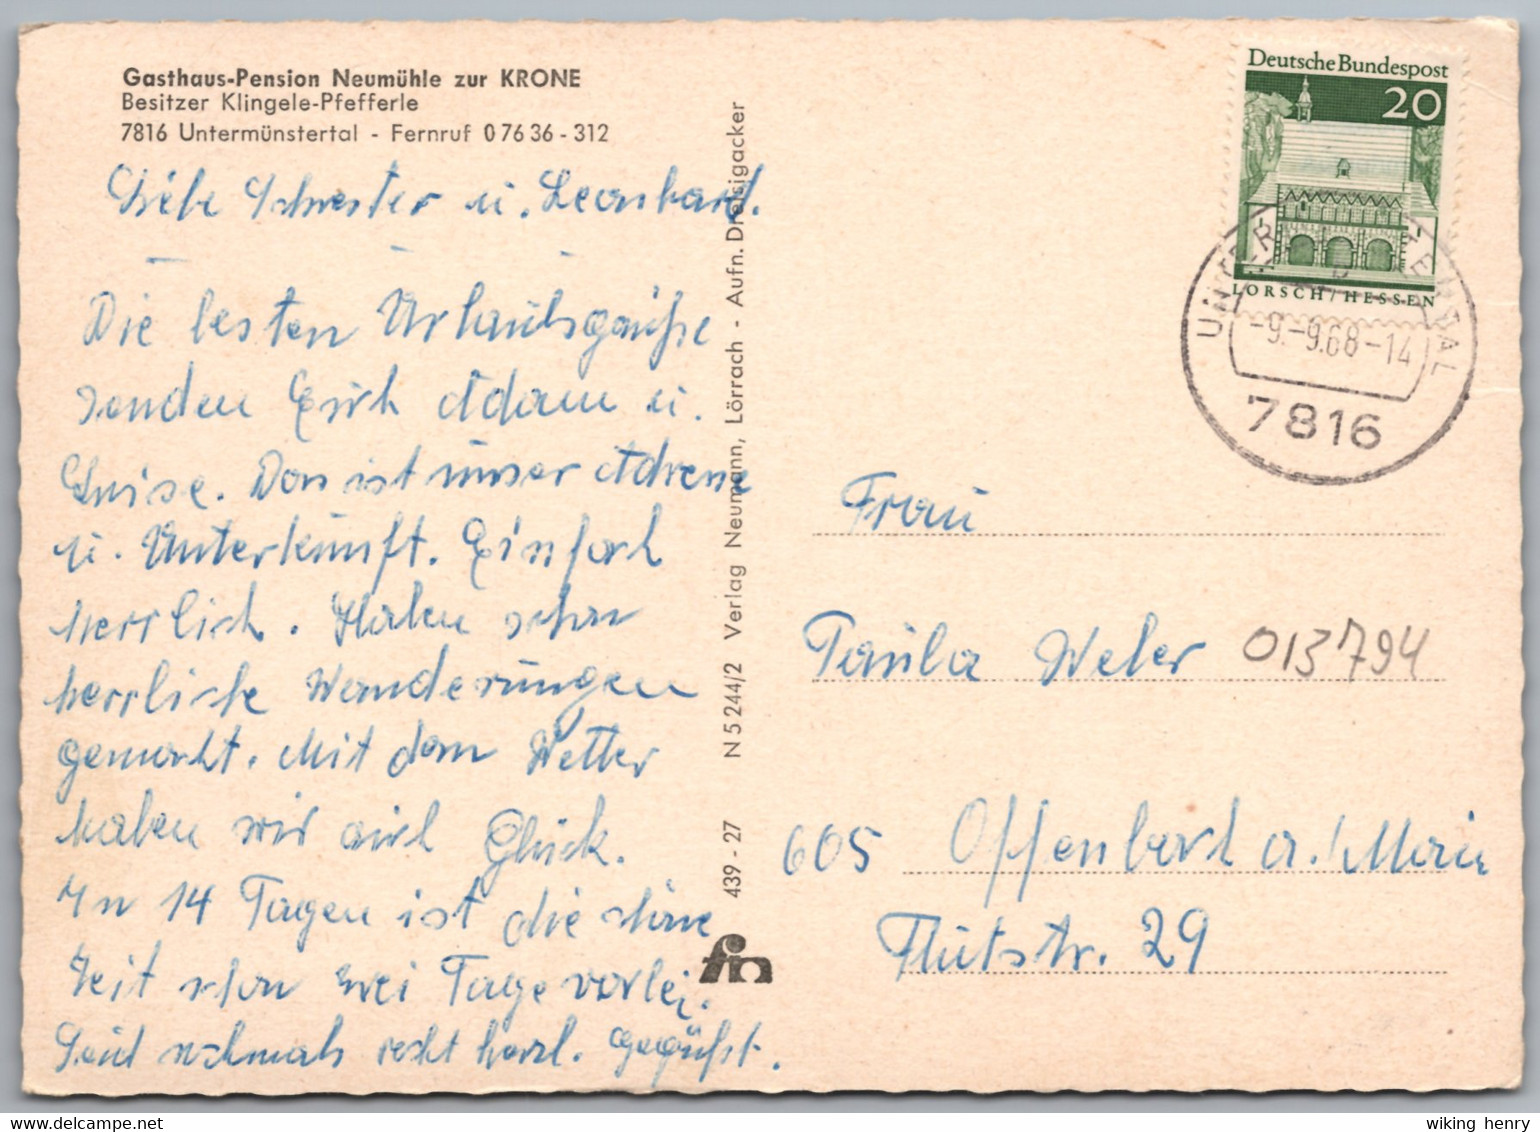 Gasthaus-Pension Neumühle zur KRONE
Besitzer Klingele-Pfefferle
7816 Untermünstertal - Fernruf 0 76 36 - 312
Liebe Schwester u. Leonhard.
Die besten Urlaubsgrüße
senden Euch Adam u.
Luise. Das ist unser Adresse
u. Unterkunft. Einfach
herrlich. Haben schon
herrliche Wanderungen
gemacht. Mit dem Wetter
haben wir auch Glück.
In 14 Tagen ist die schöne
Zeit schon zwei Tage vorbei.
Seid nochmals recht herzl. gegrüßt.
439 - 27 N 5 244/2 Verlag Neumann, Lörrach - Aufn. Dreisigacker
fn
Deutsche Bundespost
20
LORSCH/HESSEN
UNTERMÜNSTERTAL
-9.-9.68-14
7816
Frau
Paula Weber 013794
605 Offenbach a./Main
Flutstr. 29
wiking henry